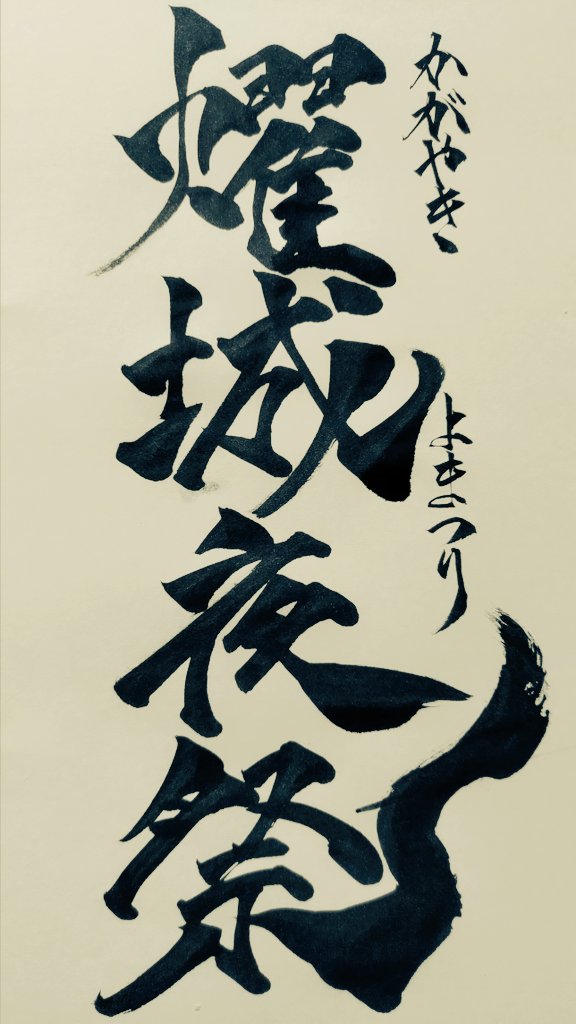 かがやき
よまつり
燿城夜祭